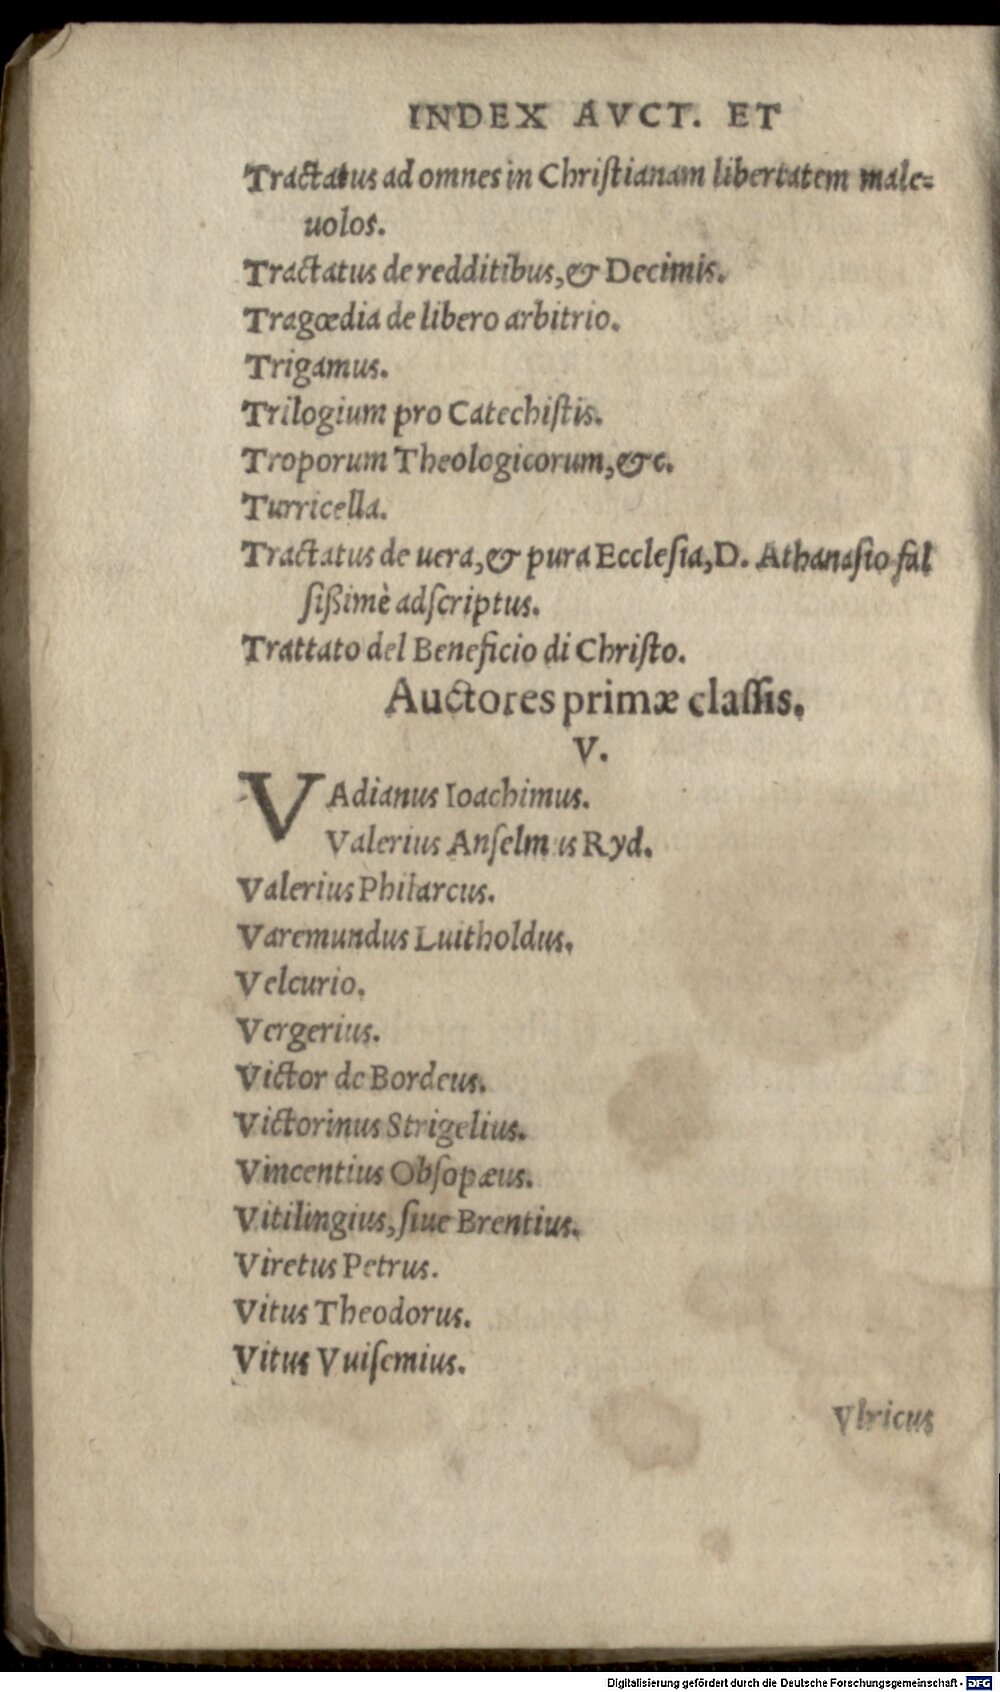 INDEX AVCT. ET
Tractatus ad omnes in Chriſtianam libertatem male=
uolos.
Tractatus de redditibus, & Decimis.
Tragœdia de libero arbitrio.
Trigamus.
Trilogium pro Catechiſtis.
Troporum Theologicorum, &c.
Turricella.
Tractatus de uera, & pura Eccleſia, D. Athanaſio fal
ſißimè adſcriptus.
Trattato del Beneficio di Chriſto.
Auctores primæ claſſis.
V.
VAdianus Ioachimus.
Valerius Anſelmus Ryd.
Valerius Philarcus.
Varemundus Luitholdus.
Velcurio.
Vergerius.
Victor de Bordeus.
Victorinus Strigelius.
Vincentius Obſopæus.
Vitilingius, ſiue Brentius.
Viretus Petrus.
Vitus Theodorus.
Vitus Vuiſemius.
Vlricus
Digitalisierung gefördert durch die Deutsche Forschungsgemeinschaft - DFG